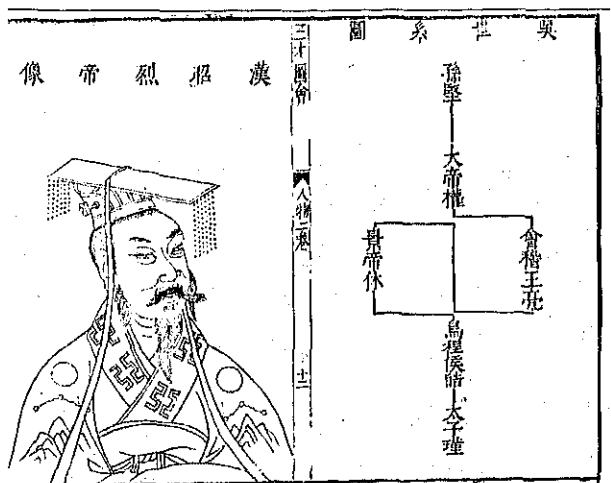 吳世系圖
孫堅
大帝權
會稽王亮
景帝休
烏程侯皓
太子瑾
三才圖會
人物二卷
十二
漢昭烈帝像